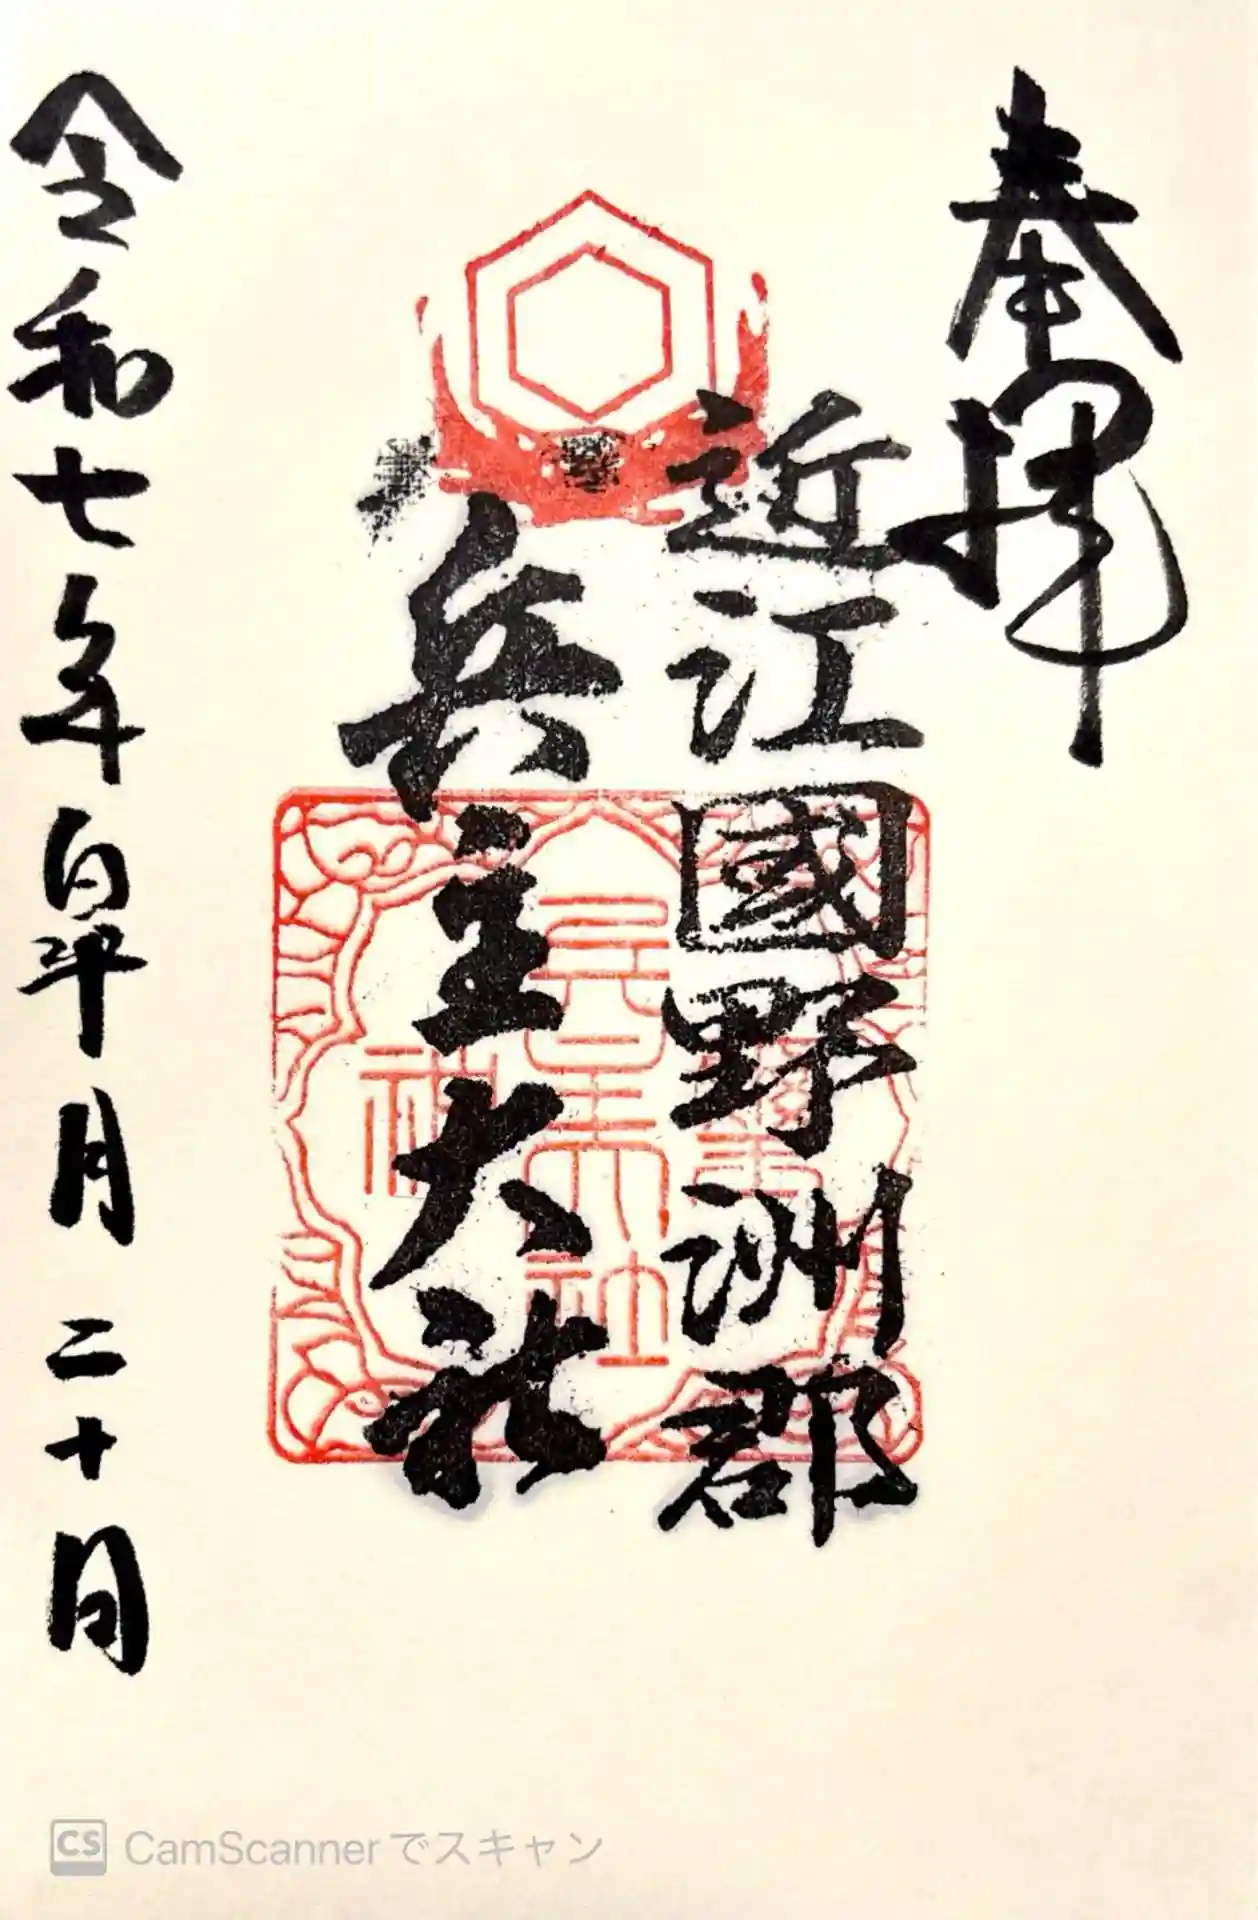 奉拝
近江國野洲郡
兵主大社
令和七年皐月二十日
CS CamScannerでスキャン